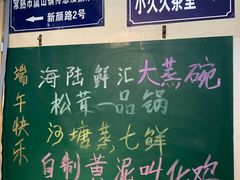 常熟市虞山镇
新颜路2号
小久久茶室
端午快乐
海陆鲜汇大蒸碗
松茸一品锅
河塘蒸七鲜
自制黄泥叫化鸡